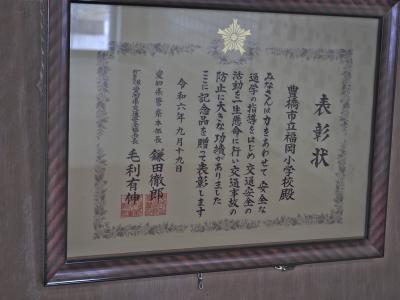 表彰状
豊橋市立福岡小学校殿
みなさんは力をあわせて安全な
通学の指導をはじめ交通安全の
活動を一生懸命に行い交通事故の
防止に大きな功績がありました
ここに記念品を贈って表彰します
令和六年九月十九日
愛知県警察本部長 鎌田徹郎
愛知県交通安全協会長 毛利有伸